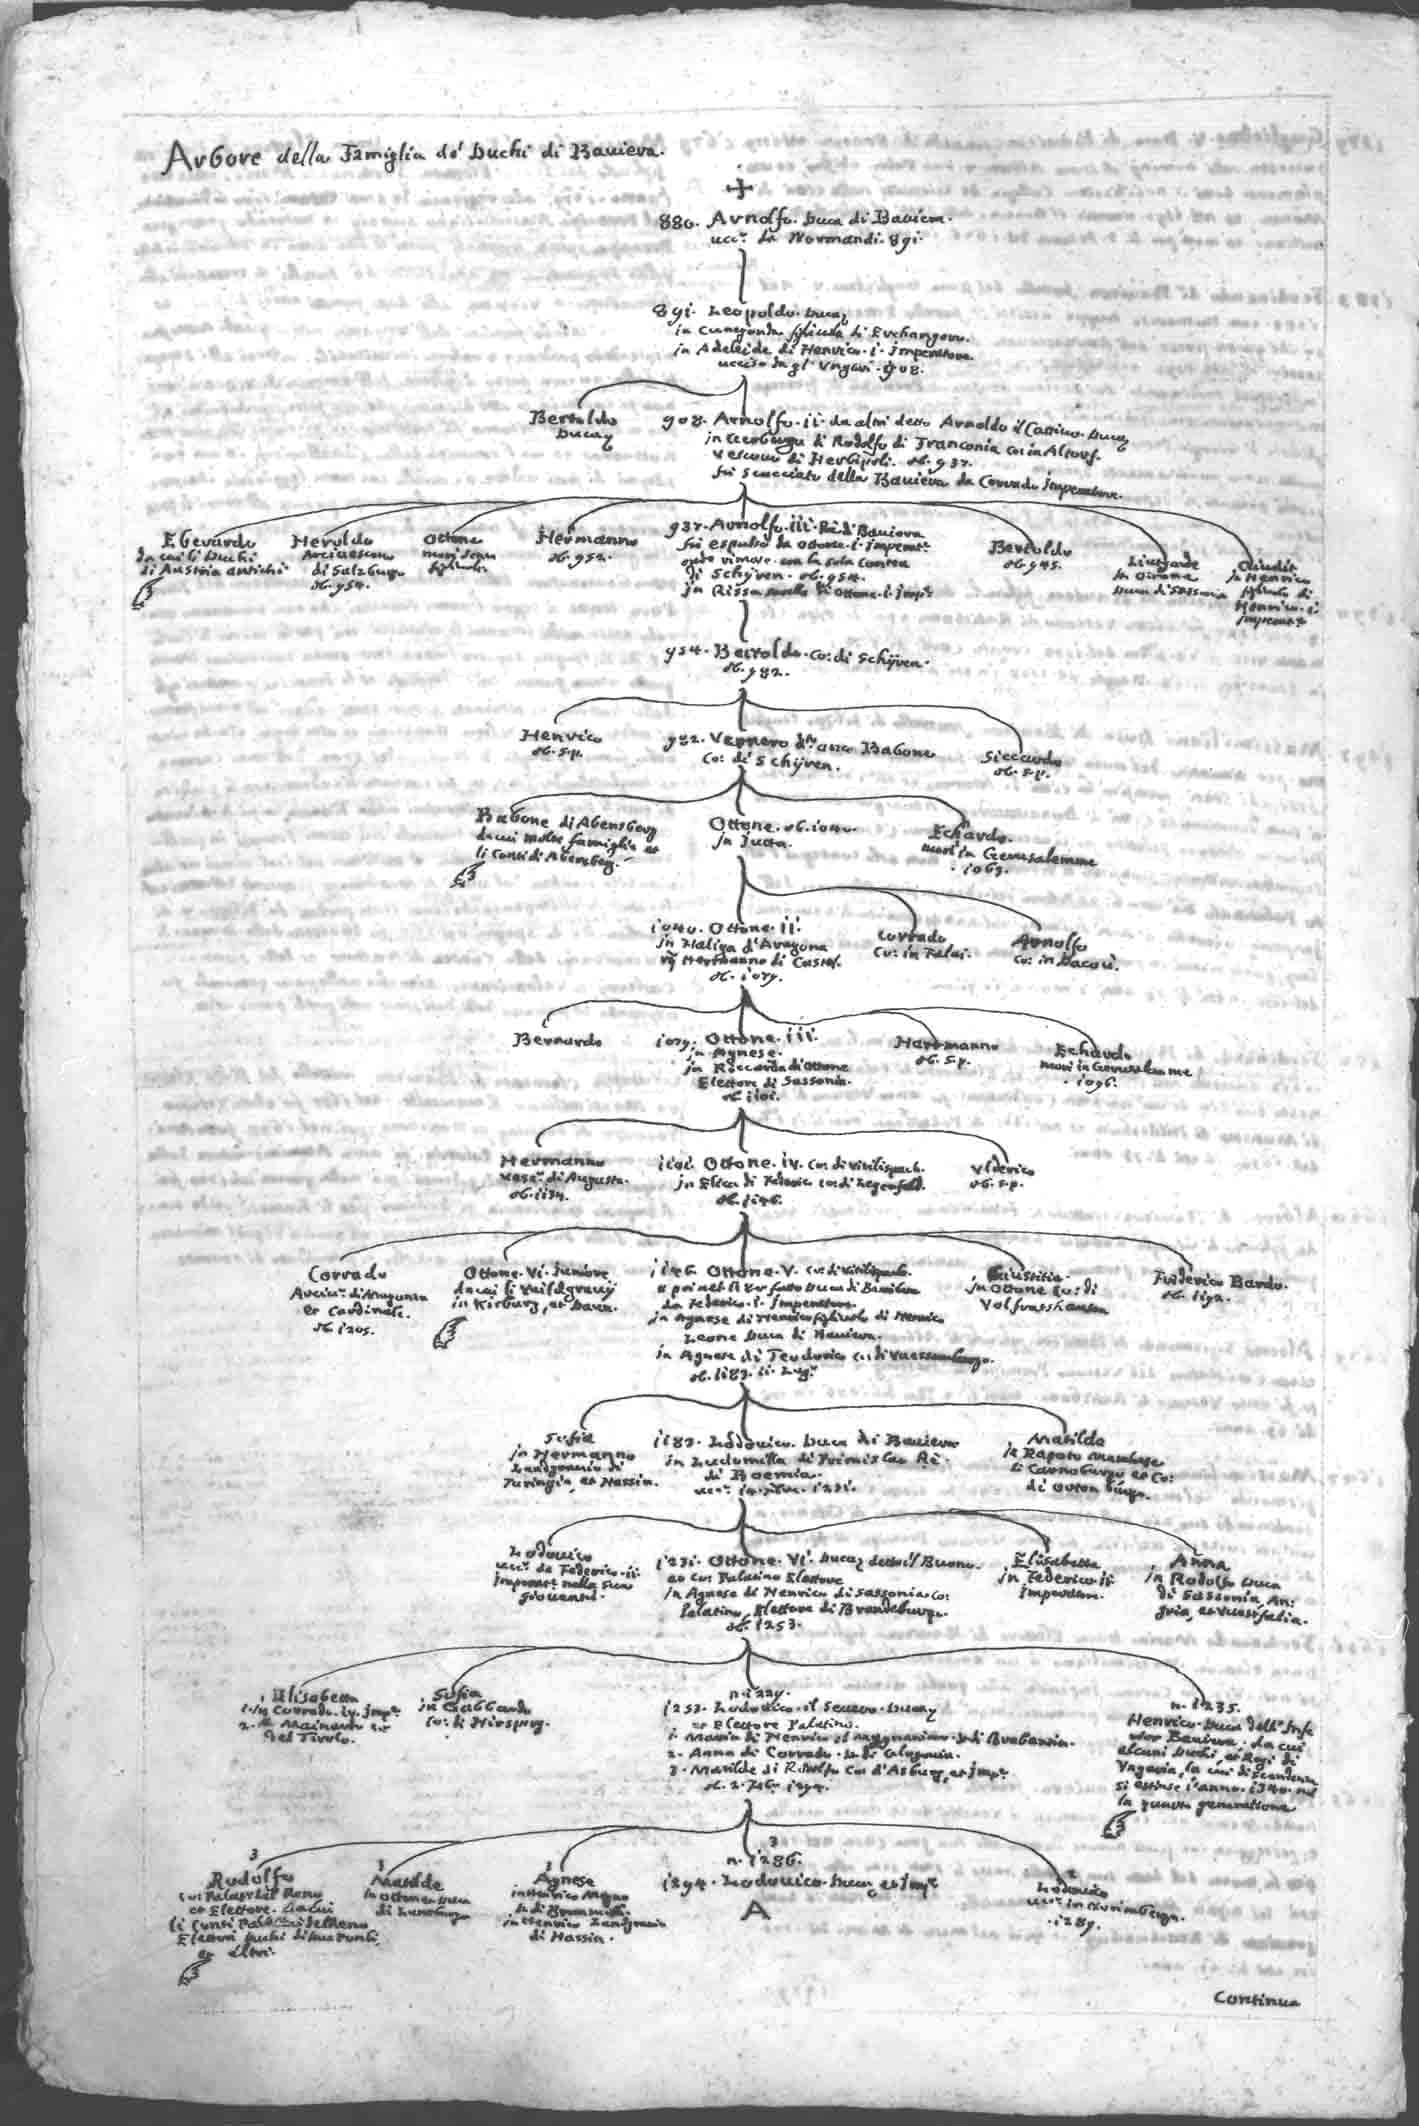 Arbore della Famiglia de' Duchi di Baviera.
880. Arnolfo. Duca di Baviera.
ucc.º da Normandi. 891.
891. Leopoldo. Duca
in Cunegonda figliuola di Erchangero.
in Adeleide di Henrico. i. Imperatore.
ucciso da gl' Ungari. 908.
Bertoldo
Duca
908. Arnolfo. ii. da altri detto Arnoldo il Cattivo. Duca
in di Rodolfo di Franconia
Vescovo di Herbipoli. ob. 937.
fu scacciato della Baviera da Corrado Imperatore.
Eberardo
da cui li Duchi
di Austria antichi
Heroldo
Arcivescovo
di Salzburg
ob. 954.
Ottone
morì senza
figliuoli.
Hermanno
ob. 952.
937. Arnolfo. iii. Rè di Baviera
fu espulso da Ottone. i. Imperat.e
onde rimase con la sola Contea
di Schÿren. ob. 954.
in Rissa sorella di Ottone. i. Imp.e
Bertoldo
ob. 945.
Liutgarde
in
Duca di Sassonia
Giudit
in Henrico
figliuolo di
Henrico. i.
Imperat.e
954. Bertoldo. Co: di Schÿren.
ob. 982.
Henrico
ob. s.p.
982. Vernero d.º anco Babone
Co: di Schÿren.
Siccardo
ob. s.p.
Babone di Abensberg
da cui molte famiglie et
li Conti di Abensberg.
Ottone. ob. 1040.
in Jutta.
Echardo.
morì in Gerusalemme
. 1063.
1040. Ottone. ii.
in Haliga d'Aragona
Hertmanno di Castel.
ob. 1079.
Corrado
Co: in Falai.
Arnolfo
Co: in Dacou.
Bernardo
1079. Ottone. iii.
in Agnese.
in Riccarda di Ottone
Elettore di Sassonia.
ob. 1101.
Hertmanno
ob. s.p.
Echardo
morì in Gerusalemme
. 1096.
Hermanno
vesc.º di Augusta.
ob. 1134.
1101. Ottone. iv. Co: di Vitilispach.
in Elica di Federico Co: di Legenfeld.
ob. 1146.
Vlderico
ob. s.p.
Corrado
Arciv.º di Magonza
et Cardinale.
ob. 1205.
Ottone. Vi. Juniore
da cui li Vuildgravij
in Kirburg, et Daun.
1146. Ottone. V. Co: di Vitilispach.
fatto Duca di Baviera
da Federico. i. Imperatore.
in Agnese di Henrico figliuolo di Henrico
Leone Duca di Baviera.
in Agnese di Teodorico Co: di Vuassemburgo.
ob. 1183. ii. Lug.º
Giustitia
in Ottone Co: di
Volfrasshausen
Friderico Bardo.
ob. 1192.
Sofia
in Hermanno
Landgravio di
Turingia, et Hassia.
1183. Lodovico. Duca di Baviera
in Ludomilla di Primislao Rè.
di Boemia.
ucc.º 1231.
Matilda
in Rapoto Marchese
di et Co:
di Ortenburgo.
Lodovico
ucc.º da Federico. ii.
Imperat.e nella sua
gioventù.
1231. Ottone. Vi. Duca detto il Buono.
et Co: Palatino Elettore
in Agnese di Henrico di Sassonia Co:
Palatino Elettore di Brandeburgo.
ob. 1253.
Elisabetta
in Federico ii
Imperatore.
Anna
in Rodolfo Duca
di Sassonia, An:
gria, et Vuestfalia.
Elisabetta
1. in Corrado. iv. Imp.e
2. in Mainardo Co:
del Tirolo.
Sofia
in Gabbardo
Co: di Hirsperg.
n. 1229.
1253. Lodovico. il Severo. Duca
et Elettore Palatino.
1. Maria di Henrico il Magnanimo. D. di Brabantia.
2. Anna di Corrado. D. di Glogovia.
3. Matilde di Ridolfo Co: d'Asburg, et Imp.e
ob. 2. Feb. 1294.
n. 1235.
Henrico. Duca dell' Infe
rior Baviera. da cui
alcuni Duchi, et Regi di
Vngaria, la cui discendenza
si estinse l'anno. 1340. nel
la quarta generatione
3
Rodolfo
Co: Palat. del Reno
et Elettore. da cui
li Conti Palatini del Reno
Elettori Duchi di Due Ponti,
et altri.
3
Matilde
in Ottone Duca
di Luneburg
3
Agnese
in Henrico
in Henrico Landgravio
di Hassia.
3
n. 1286.
1294. Lodovico. Duca et Imp.e
A
2
Lodovico
ucc.º in Norimberga.
. 1289.
Continua